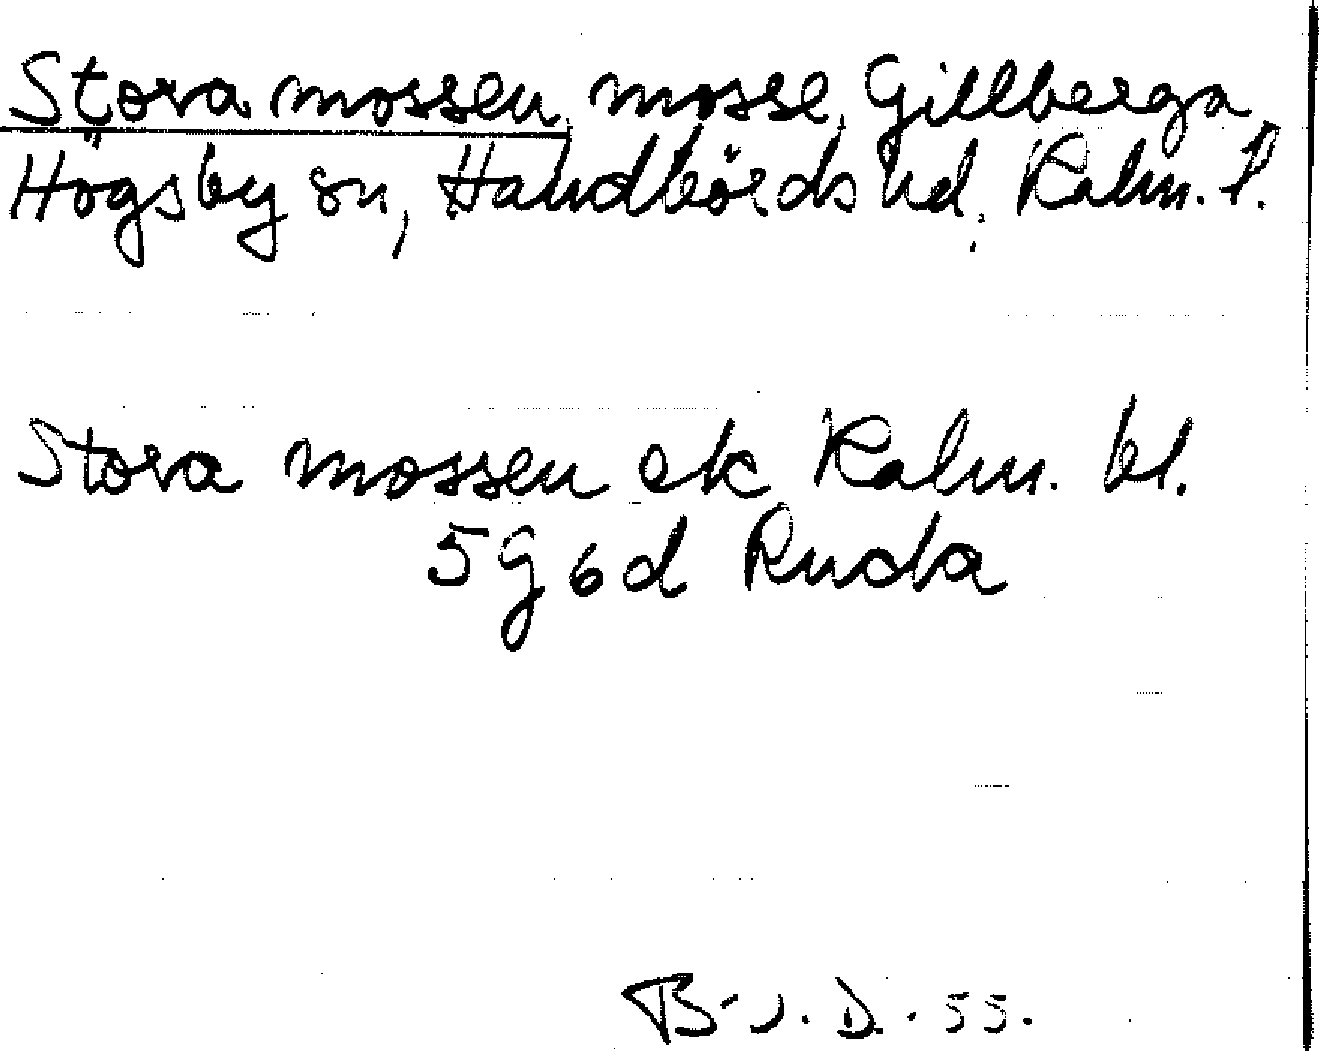 Stora mossen, mosse, Gillberga,
Högsby sn, Handbörds hd, Kalm. l.
Stora mossen ek Kalm. bl.
5G6d Ruda
B-J. D. 55.